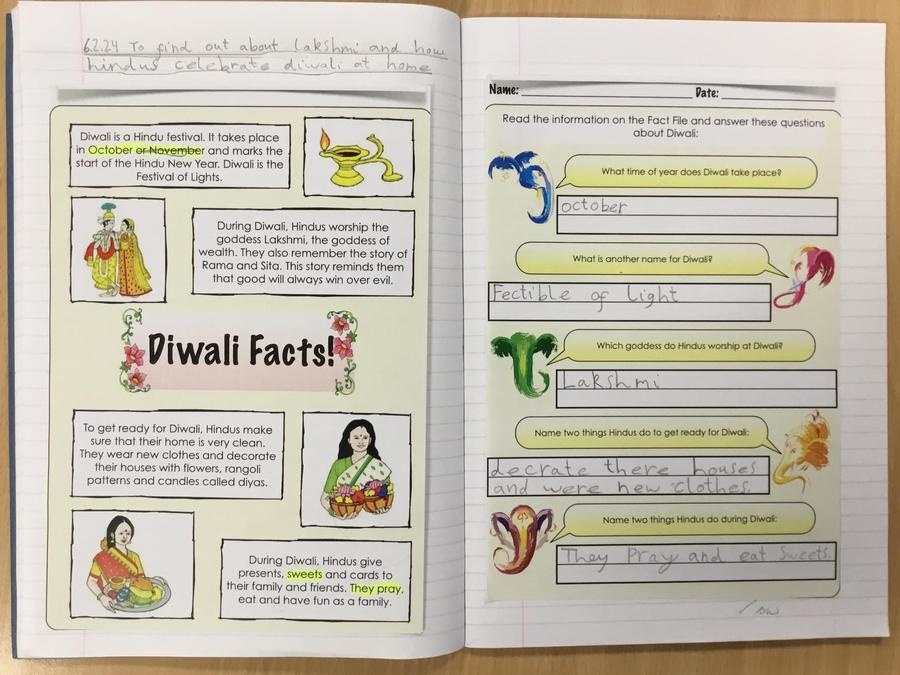 6.2.24 To find out about Lakshmi and how
hindus celebrate diwali at home
Diwali is a Hindu festival. It takes place
in October or November and marks the
start of the Hindu New Year. Diwali is the
Festival of Lights.
During Diwali, Hindus worship the
goddess Lakshmi, the goddess of
wealth. They also remember the story of
Rama and Sita. This story reminds them
that good will always win over evil.
Diwali Facts!
To get ready for Diwali, Hindus make
sure that their home is very clean.
They wear new clothes and decorate
their houses with flowers, rangoli
patterns and candles called diyas.
During Diwali, Hindus give
presents, sweets and cards to
their family and friends. They pray,
eat and have fun as a family.
Name: Date:
Read the information on the Fact File and answer these questions
about Diwali:
What time of year does Diwali take place?
October
What is another name for Diwali?
Fectible of Light
Which goddess do Hindus worship at Diwali?
Lakshmi
Name two things Hindus do to get ready for Diwali:
decrate there houses
and were new clothes.
Name two things Hindus do during Diwali:
They Pray and eat sweets.